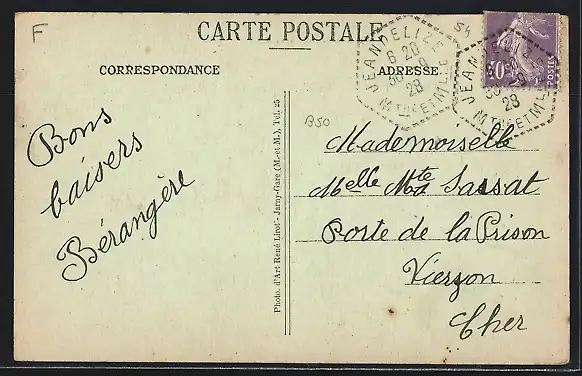 F
CARTE POSTALE
54
CORRESPONDANCE
ADRESSE
JEANDELIZE
6 20
30 - 9
28
MTHE ET MLLE
JEANDELIZE
28
MTHE ET MLLE
POSTES
B50
Bons
baisers
Bérangère
Photo. d'Art René Lirot - Jarny-Gare (M.-et-M.), Tél. 25
Mademoiselle
Melle Mte Sassat
Porte de la Prison
Vierzon
Cher